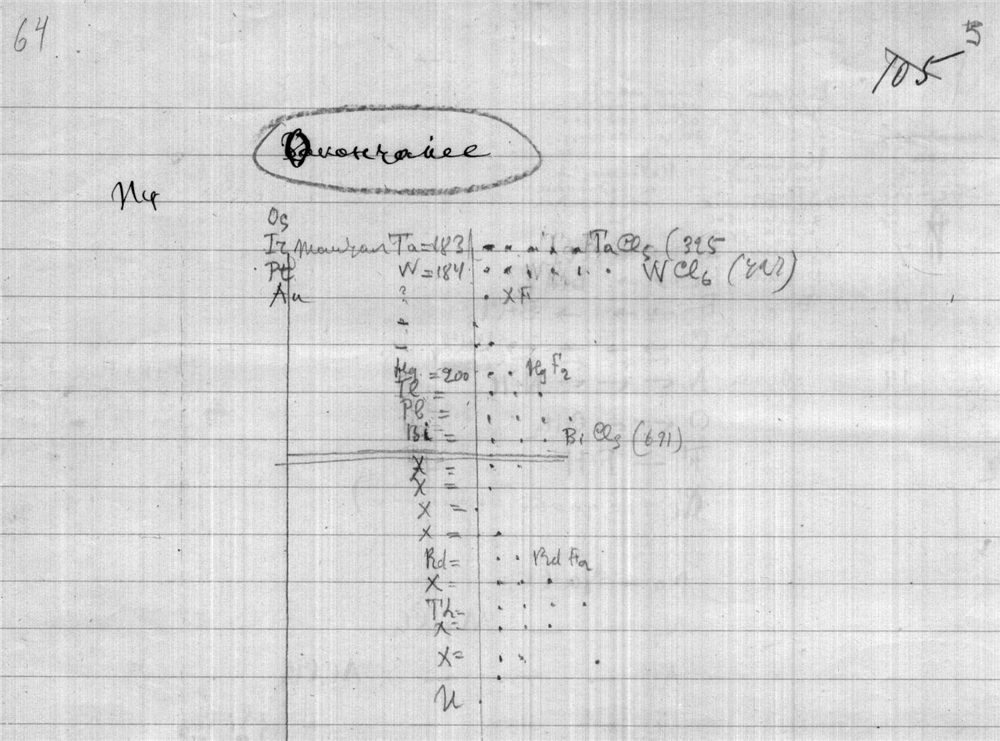 64
5
705
Окончание
Os
Ir Ta=183 TaCl5 (395
Pt W=184 WCl6
Au ? XFl
–
–
Hg =200 HgF2
Tl =
Pb =
Bi = BiCl3 (691)
X =
X =
X =
X =
Rd= RdFl2
X=
Th=
X=
X=
U